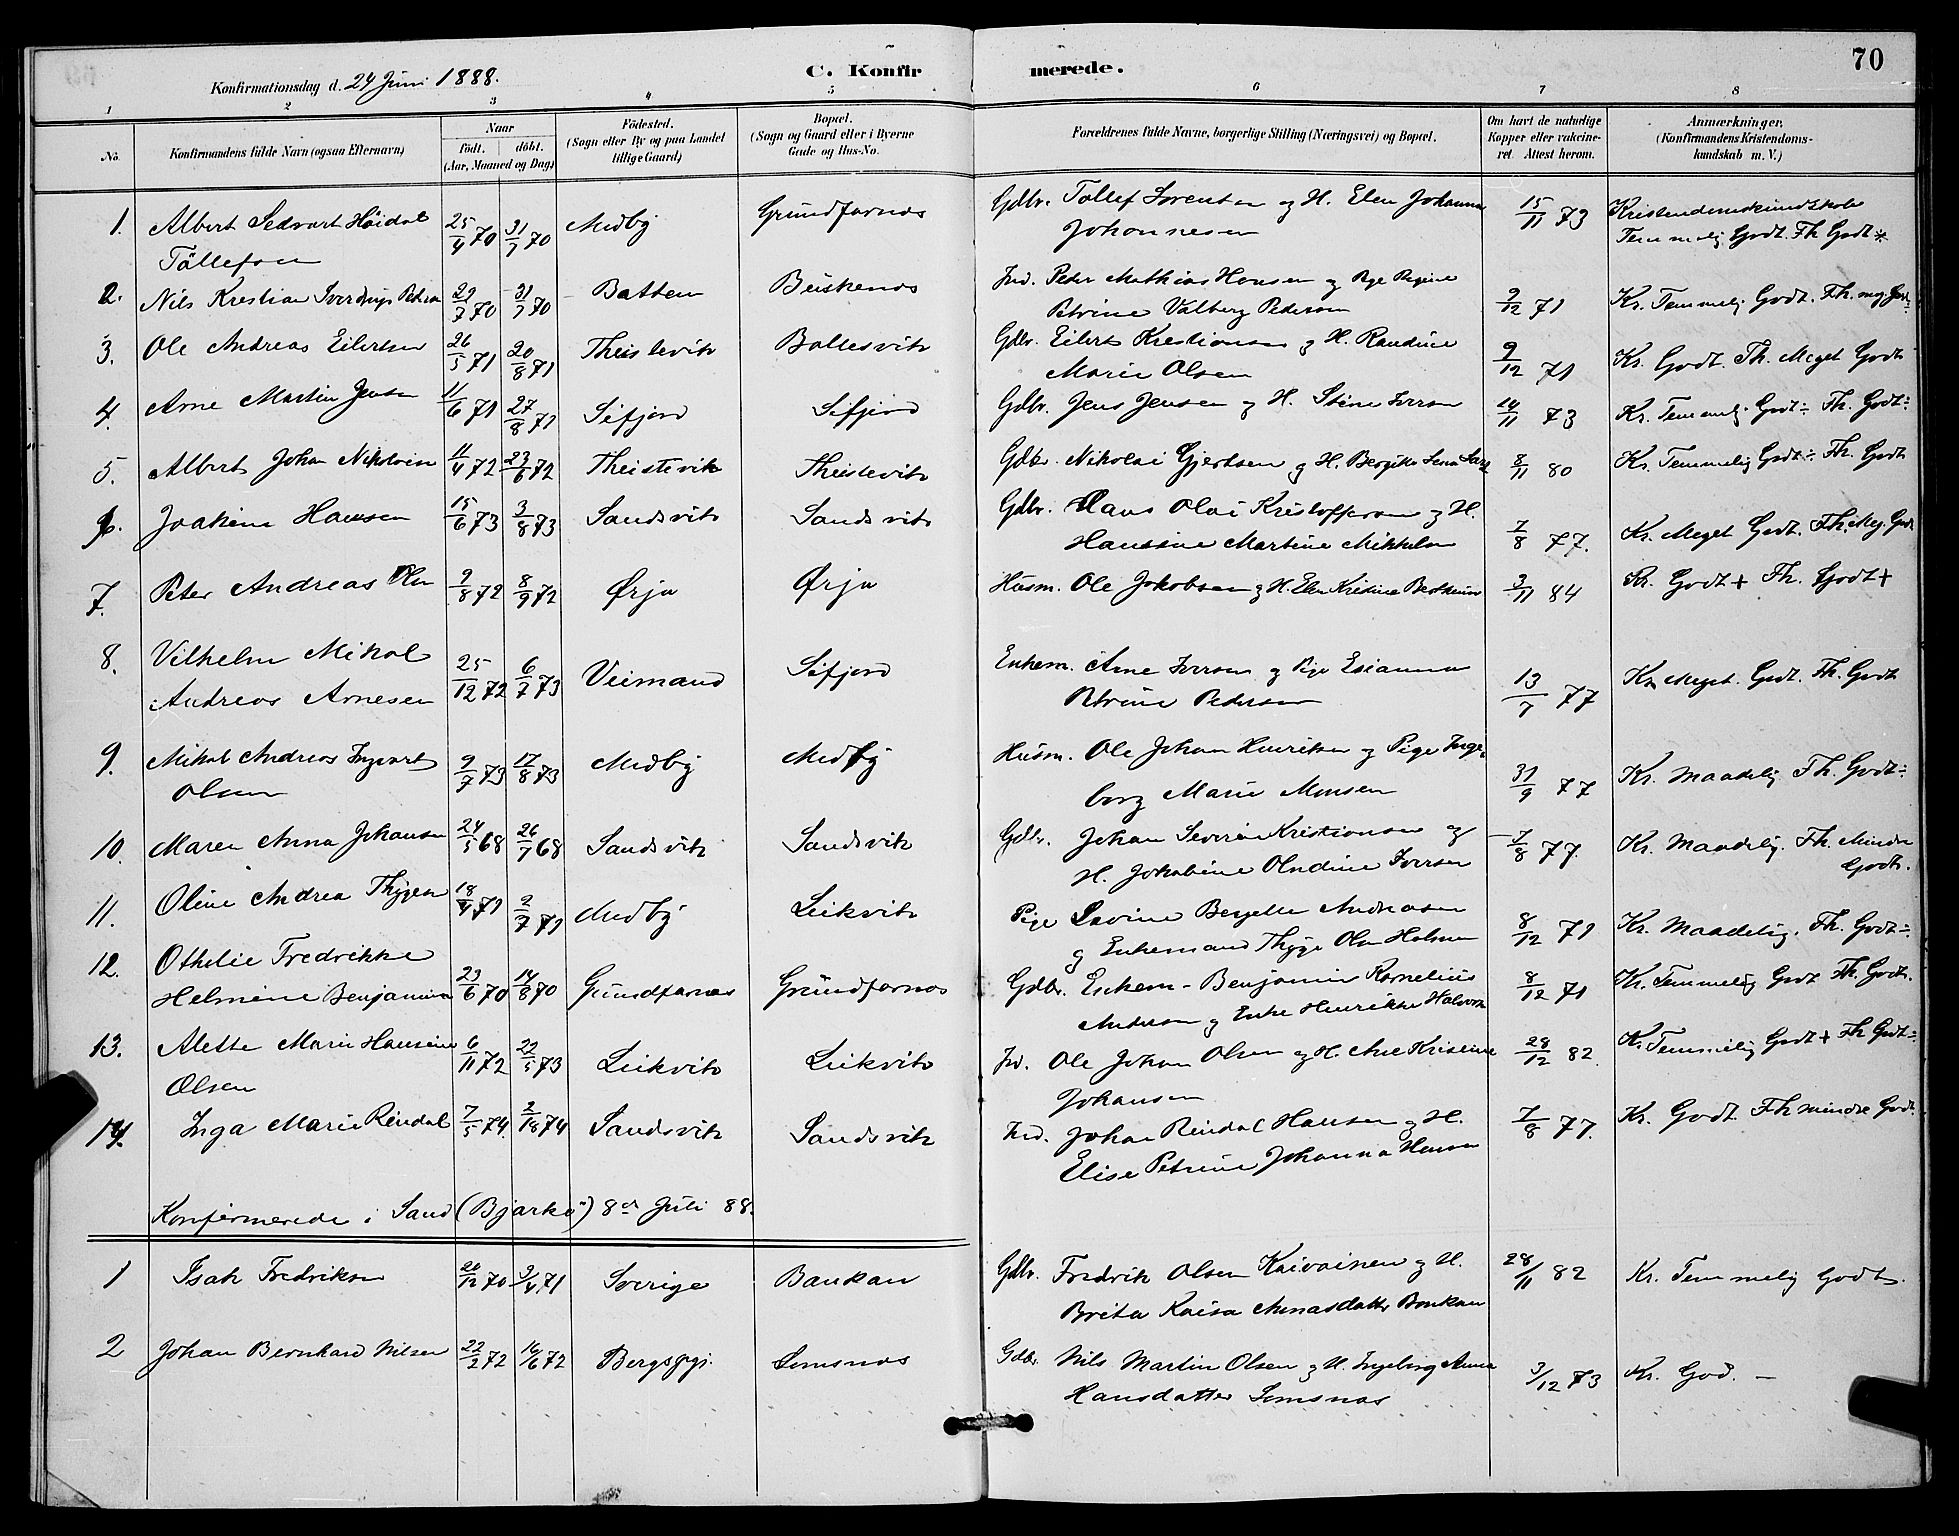 70
Konfirmationsdag d. 24 Juni 1888.
C. Konfirmerede.
1 2 3 4 5 6 7 8
No. Konfirmandens fulde Navn (ogsaa Efternavn) Naar født. døbt. (Aar, Maaned og Dag) Fødested. (Sogn eller By og paa Landet tillige Gaard) Bopæl. (Sogn og Gaard eller i Byerne Gade og Hus-No. Forældrenes fulde Navne, borgerlige Stilling (Næringsvei) og Bopæl. Om havt de naturlige Kopper eller vakcineret. Attest herom. Anmærkninger. (Konfirmandens Kristendomskundskab m. V.)
1. Albert Sedvart Høidal 25/4 70 31/7 70 Medby Grundfarnes Gdbr. Tollef Sorentsen og H. Elen Johanna 15/11 73 Kristendomskundskab
Töllefsen Johannesen Temmelig Godt. Fh Godt *
2. Nils Krestian Sverdrup Petersen 31/7 70 Batten Buskenes Ind. Peter Mathias Hansen og Pige Regine 9/12 71 Kr. Temmelig Godt. Fh. meg. Godt
Petrine Valberg Pedersen
3. Ole Andreas Eilertsen 26/5 71 20/8 71 Theistevik Baltesvik Gdbr. Eilert Krestiansen og H. Randine 9/12 71 Kr. Godt. Fh. Meget Godt
Marie Olsen
4. Arne Martin Jensen 11/6 71 27/8 71 Sifjord Sifjord Gdbr. Jens Jensen og H. Stine Iversen 14/11 73 Kr. Temmelig Godt ÷ Fh. Godt ÷
5. Albert Johan Nikolaisen 11/4 72 23/6 72 Theistevik Theistevik Gdbr. Nikolai Gjertsen og H. Bergitte Lena 8/11 80 Kr. Temmelig Godt ÷ Fh. Godt
6. Joakim Hansen 15/6 73 3/8 73 Sandsvik Sandsvik Gdbr. Hans Olai Kristoffersen og H. 7/8 77. Kr. Meget Godt. Fh. Meg. Godt
Hansine Martine Mikkelsen
7. Peter Andreas Olsen 9/8 72 8/9 72 Ørja Ørja Husm. Ole Jakobsen og H. Elen Kristine 3/11 84 Kr. Godt + Fh. Godt +
8. Vilhelm Mikal 25/12 72 6/7 73 Veimand Sifjord Enkem. Arne Iversen og Pige Esianna 13/7 77 Kr. Meget Godt. Fh. Godt
Andreas Arnesen Petrine Pedersen
9. Mikal Andreas Ingvart 9/7 73 17/8 73 Medby Medby Husm. Ole Johan Henriksen og Pige Inge- 31/9 77 Kr. Maadelig Fh. Godt ÷
Olsen borg Marie Monsen
10. Maren Anna Johansen 24/5 68 26/7 68 Sandsvik Sandsvik Gdbr. Johan Severin Kristiansen og 7/8 77. Kr. Maadelig. Fh. Mindre
H. Jakobine Olndine Iversen Godt.
11. Oline Andrea Thygesen 18/4 71 2/7 71 Medby Leikvik Pige Lovine Bergette Andreasen 8/12 71 Kr. Maadelig. Fh. Godt ÷
og Enkemand Thyge Olsen Holmen
12. Othelie Fredrikke 23/6 70 14/8 70 Grundfarnes Grundfarnes Gdbr. Enkem- Benjamin Kornelius 8/12 71 Kr. Temmelig Godt Fh. Godt.
Helmine Benjaminsen Andersen og Enke Henrikke Halvorsen
13. Alette Marie Hansine 6/11 72 22/5 73 Leikvik Leikvik Ind. Ole Johan Olsen og H. Ane Kristine 28/12 82. Kr. Temmelig Godt + Fh Godt ÷
Olsen Johansen
14. Inga Marie Reindal 7/5 74. 74 Sandsvik Sandsvik Ind. Johan Reindal Hansen og H. 7/8 77. Kr. Godt. Fh mindre Godt.
Elise Petrine Johanna Hansen
Konfirmerede i Sand (Bjarkø) 8de Juli 88.
1 Isak Fredriksen 20/12 70 3/4 71 Sverige Baukan Gdbr. Fredrik Olsen Kaivainen og H. 28/11 82 Kr. Temmelig Godt.
Brita Kaisa Annasdatter Baukan
2 Johan Bernhard Nilsen 22/2 72 16/6 72 Bergsøy. Lemsnas Gdbr. Nils Martin Olsen og H. Ingeborg Anna 3/12 73 Kr. God. —
Hansdatter Lemsnas